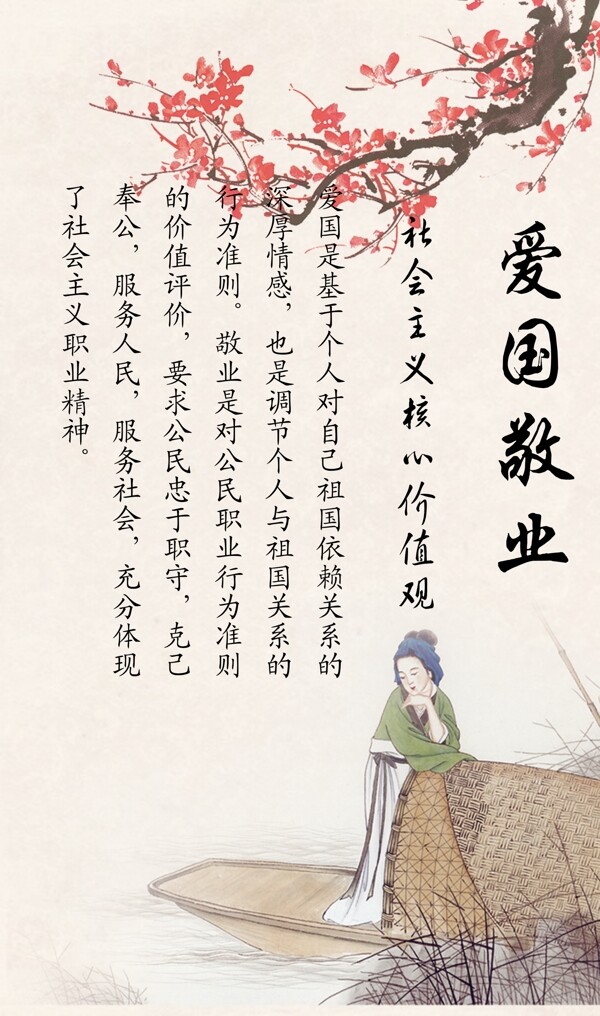 爱国敬业
社会主义核心价值观
爱国是基于个人对自己祖国依赖关系的
深厚情感，也是调节个人与祖国关系的
行为准则。敬业是对公民职业行为准则
的价值评价，要求公民忠于职守，克己
奉公，服务人民，服务社会，充分体现
了社会主义职业精神。